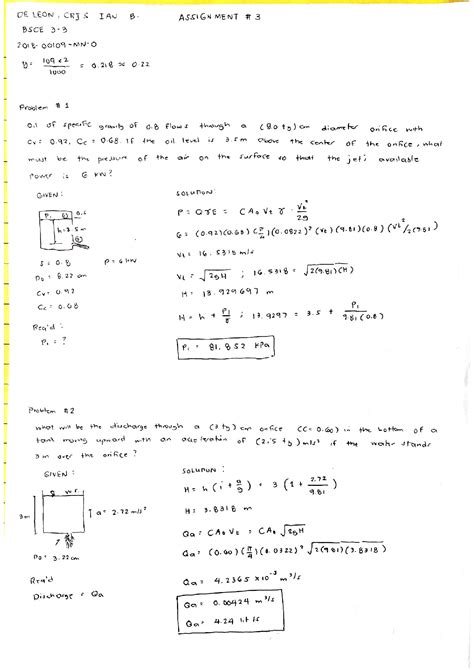 DE LEON, CRIS IAN B.    ASSIGNMENT # 3
BSCE 3-3
2018-00109-MN-0
y = 109 x 2 / 1000 = 0.218 ≈ 0.22
Problem # 1
of specific gravity of 0.8 flows through a (8.0 + y) cm diameter orifice with
Cv = 0.92, Cc = 0.68. If the oil level is 3.5m above the center of the orifice, what
must be the pressure of the air on the surface so that the jet's available
power is 6 kW?
GIVEN:
P1
h=3.5m
S = 0.8    P = 6 kW
Do = 8.22 cm
Cv = 0.92
Cc = 0.68
Req'd:
P1 = ?
SOLUTION:
P = QγE = CAo Vt γ · Vt² / 2g
6 = (0.92)(0.68)(π/4)(0.0822)² (Vt) (9.81)(0.8) (Vt² / 2(9.81))
Vt = 16.5318 m/s
Vt = √2gH ; 16.5318 = √2(9.81)(H)
H = 13.929697 m
H = h + P1/γ ; 13.9297 = 3.5 + P1 / 9.81(0.8)
P1 = 81.852 kPa
Problem #2
What will be the discharge through a (3+y) cm orifice (C=0.60) in the bottom of a
tank moving upward with an acceleration of (2.5+y) m/s² if the water stands
3m over the orifice?
GIVEN:
3m
a = 2.72 m/s²
Do = 3.22 cm
Req'd
Discharge = Qa
SOLUTION:
H = h (1 + a/g) = 3 (1 + 2.72/9.81)
H = 3.8318 m
Qa = CAo Vt = CAo √2gH
Qa = (0.60)(π/4)(0.0322)² √2(9.81)(3.8318)
Qa = 4.2365 x10⁻³ m³/s
Qa = 0.00424 m³/s
Qa = 4.24 lit/s